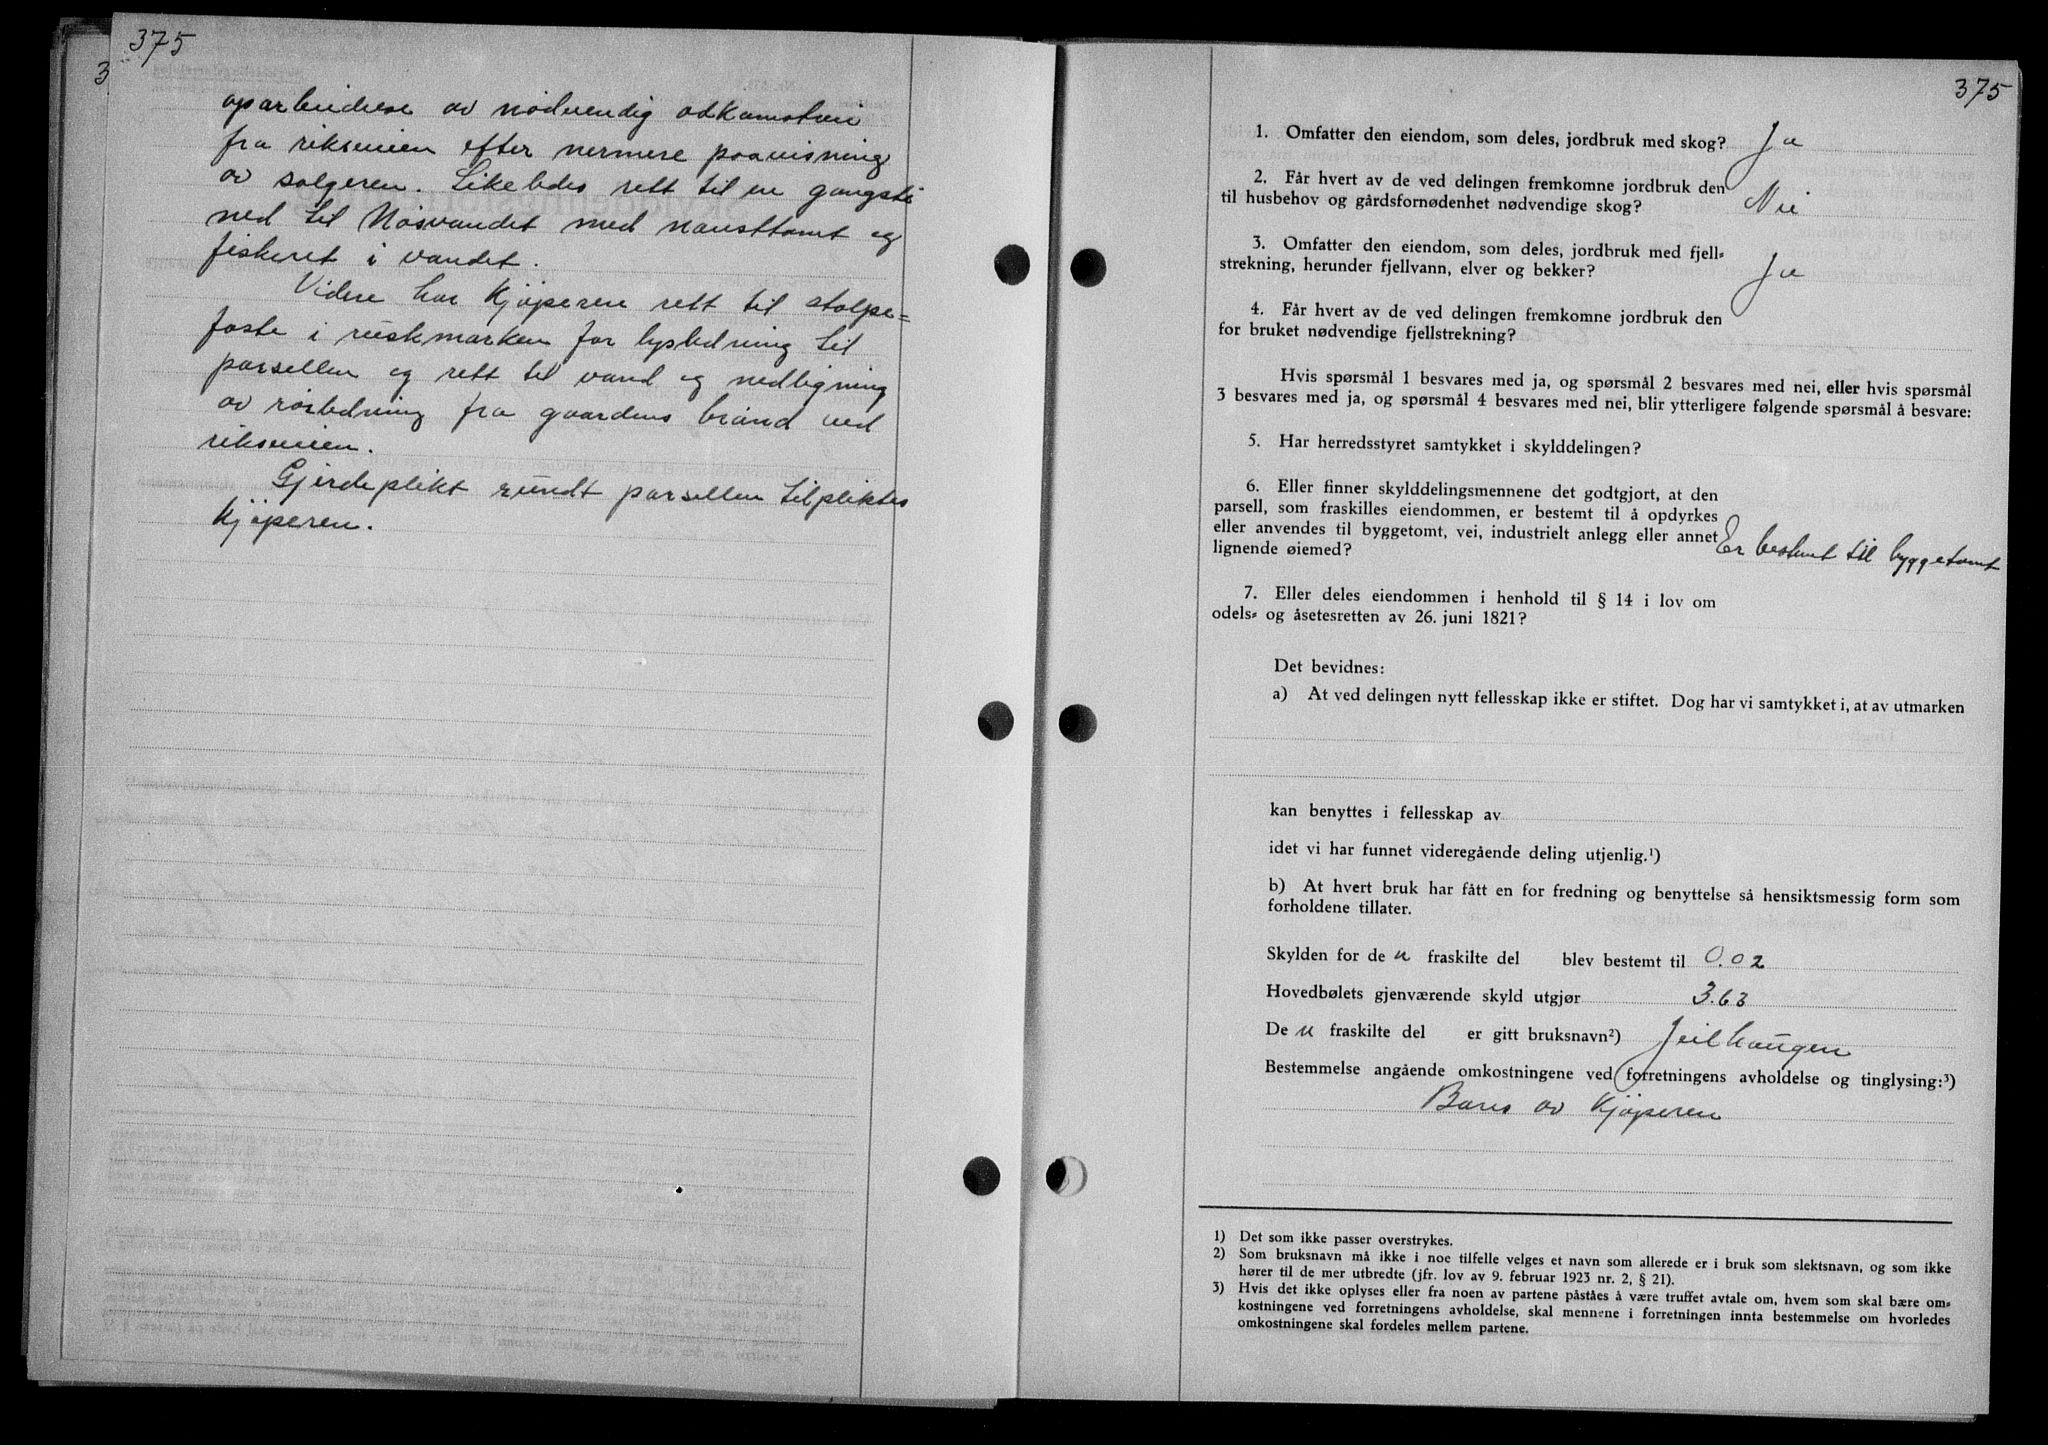 375
3
oparbeidese av nødvendig adkomstvei
fra riksveien efter nermere paavisning
av selgeren. Likeledes rett til en gangsti
ned til Mosvandet med nausttomt og
fiskeret i vandet.
Videre har kjøperen rett til stolpe=
feste i utmarken for lysledning til
parsellen og rett til vand og nedligning
av rørledning fra gaardens brønd ved
riksveien.
Gjerdeplikt rundt parsellen tilpliktes
kjøperen.
375
1. Omfatter den eiendom, som deles, jordbruk med skog? Ja
2. Får hvert av de ved delingen fremkomne jordbruk den
til husbehov og gårdsfornødenhet nødvendige skog? Nei
3. Omfatter den eiendom, som deles, jordbruk med fjell=
strekning, herunder fjellvann, elver og bekker? Ja
4. Får hvert av de ved delingen fremkomne jordbruk den
for bruket nødvendige fjellstrekning?
Hvis spørsmål 1 besvares med ja, og spørsmål 2 besvares med nei, eller hvis spørsmål
3 besvares med ja, og spørsmål 4 besvares med nei, blir ytterligere følgende spørsmål å besvare:
5. Har herredsstyret samtykket i skylddelingen?
6. Eller finner skylddelingsmennene det godtgjort, at den
parsell, som fraskilles eiendommen, er bestemt til å opdyrkes
eller anvendes til byggetomt, vei, industrielt anlegg eller annet
lignende øiemed? Er bestemt til byggetomt
7. Eller deles eiendommen i henhold til § 14 i lov om
odels= og åsetesretten av 26. juni 1821?
Det bevidnes:
a) At ved delingen nytt fellesskap ikke er stiftet. Dog har vi samtykket i, at av utmarken
kan benyttes i fellesskap av
idet vi har funnet videregående deling utjenlig.¹)
b) At hvert bruk har fått en for fredning og benyttelse så hensiktsmessig form som
forholdene tillater.
Skylden for de n fraskilte del blev bestemt til 0.02
Hovedbølets gjenværende skyld utgjør 3.63
De n fraskilte del er gitt bruksnavn²) Jeilhaugen
Bestemmelse angående omkostningene ved forretningens avholdelse og tinglysing:³)
Bæres av kjøperen
1) Det som ikke passer overstrykes.
2) Som bruksnavn må ikke i noe tilfelle velges et navn som allerede er i bruk som slektsnavn, og som ikke
hører til de mer utbredte (jfr. lov av 9. februar 1923 nr. 2, § 21).
3) Hvis det ikke oplyses eller fra noen av partene påståes å være truffet avtale om, hvem som skal bære om=
kostningene ved forretningens avholdelse, skal mennene i forretningen innta bestemmelse om hvorledes
omkostningene skal fordeles mellem partene.